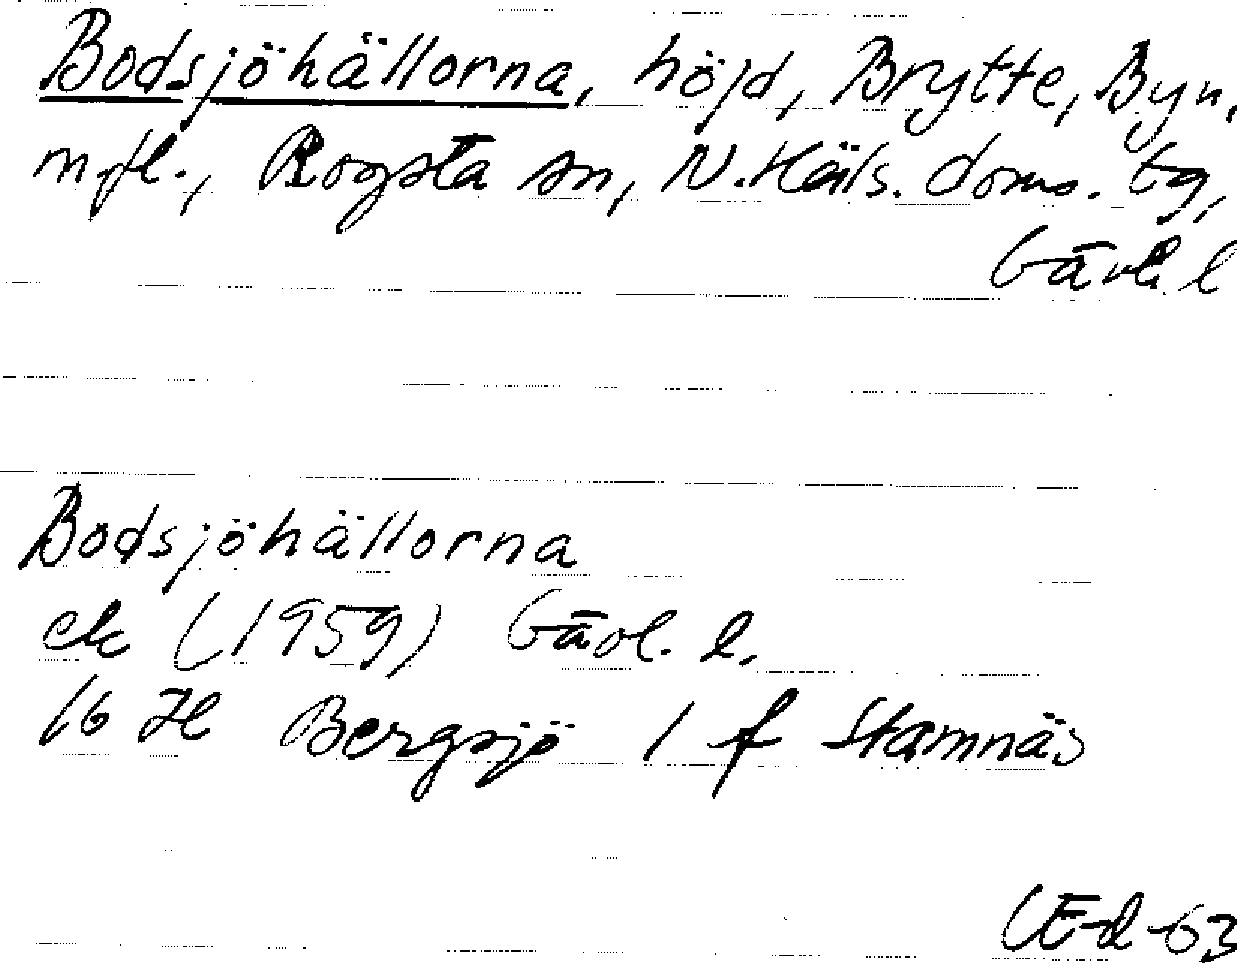 Bodsjöhällorna, höjd, Brytte, Byn,
m.fl., Rogsta sn, N. Häls. doms. tg,
Gävl. l
Bodsjöhällorna
ek (1959) Gävl. l.
16 H Bergsjö 1 f Stamnäs